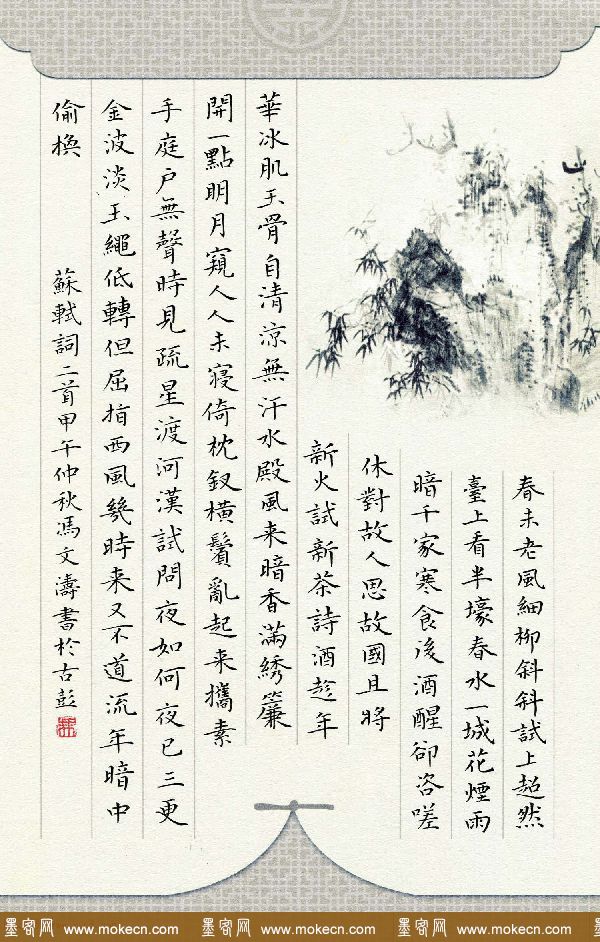 春未老風細柳斜斜試上超然
臺上看半壕春水一城花煙雨
暗千家寒食後酒醒卻咨嗟
休對故人思故國且將
新火試新茶詩酒趁年
華冰肌玉骨自清涼無汗水殿風来暗香滿綉簾
開一點明月窺人人未寢倚枕釵橫鬢亂起来攜素
手庭户無聲時見疏星渡河漢試問夜如何夜已三更
金波淡玉繩低轉但屈指西風幾時来又不道流年暗中
偷換
蘇軾詞二首甲午仲秋馮文濤書於古彭
墨客网 www.mokecn.com 墨客网 www.mokecn.com 墨客网 www.mokecn.com